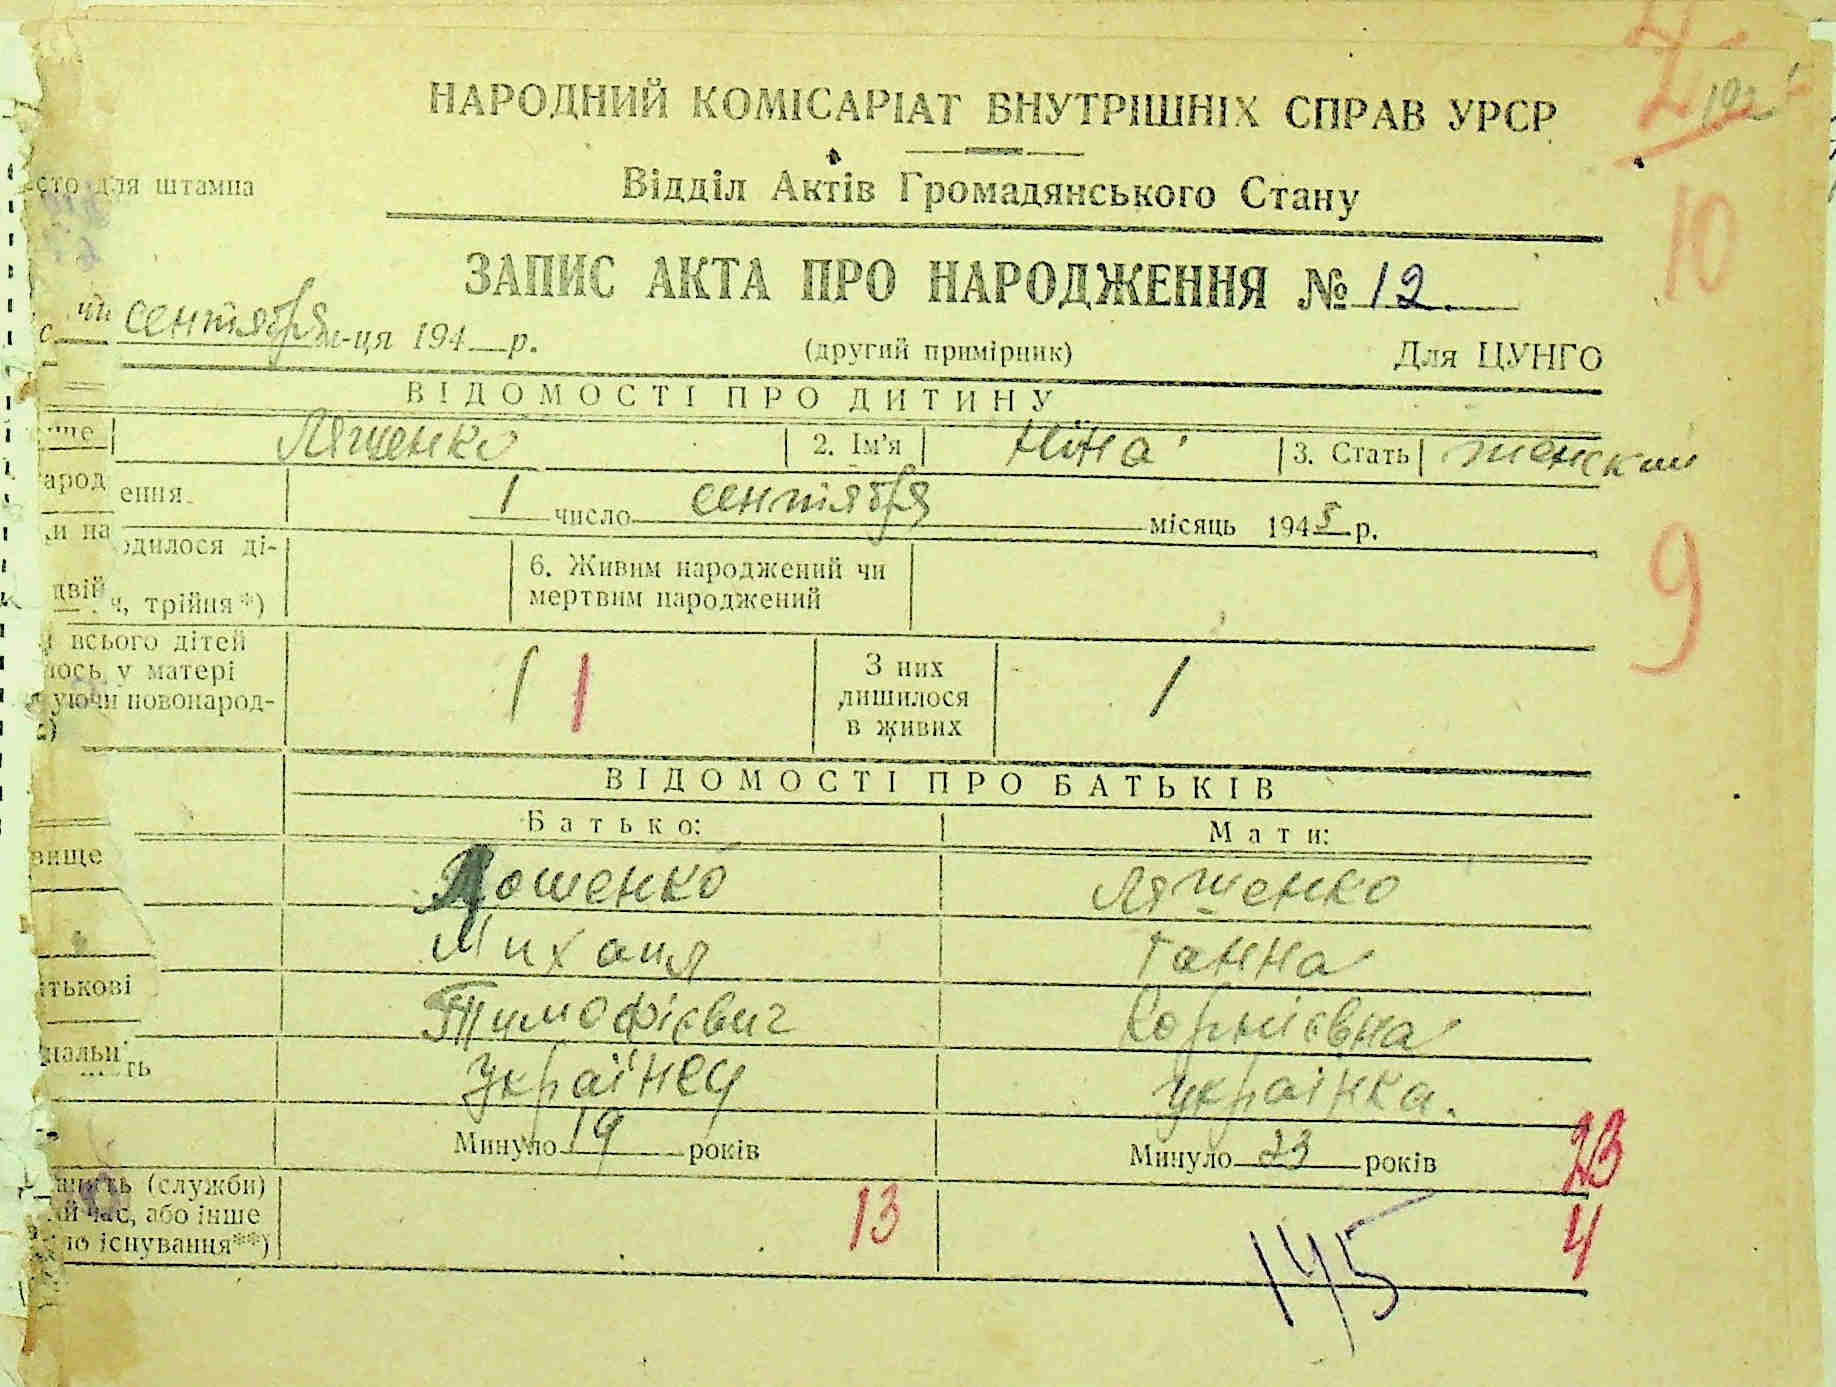 102
НАРОДНИЙ КОМІСАРІАТ ВНУТРІШНІХ СПРАВ УРСР
Відділ Актів Громадянського Стану
сто для штампа
10
ЗАПИС АКТА ПРО НАРОДЖЕННЯ № 12.
сентября м-ця 194 р.
(другий примірник)
Для ЦУНГО
ВІДОМОСТІ ПРО ДИТИНУ
Лященко 2. Ім'я Ніна 3. Стать женский
арод ення 1 число сентября місяць 1945 р.
одилося ді-
двій я, трійня*)
6. Живим народжений чи
мертвим народжений
9
всього дітей
лось у матері
уючи новонарод-
1 1
З них
лишилося
в живих
1
ВІДОМОСТІ ПРО БАТЬКІВ
Батько: Мати:
вище Лошенко Лященко
Михаил Ганна
тькові Тимофієвич Корніевна
нальн ть Українец Українка.
Минуло 19 років Минуло 23 років 23
анять (служби)
й час, або інше
ло існування**)
13
145
4